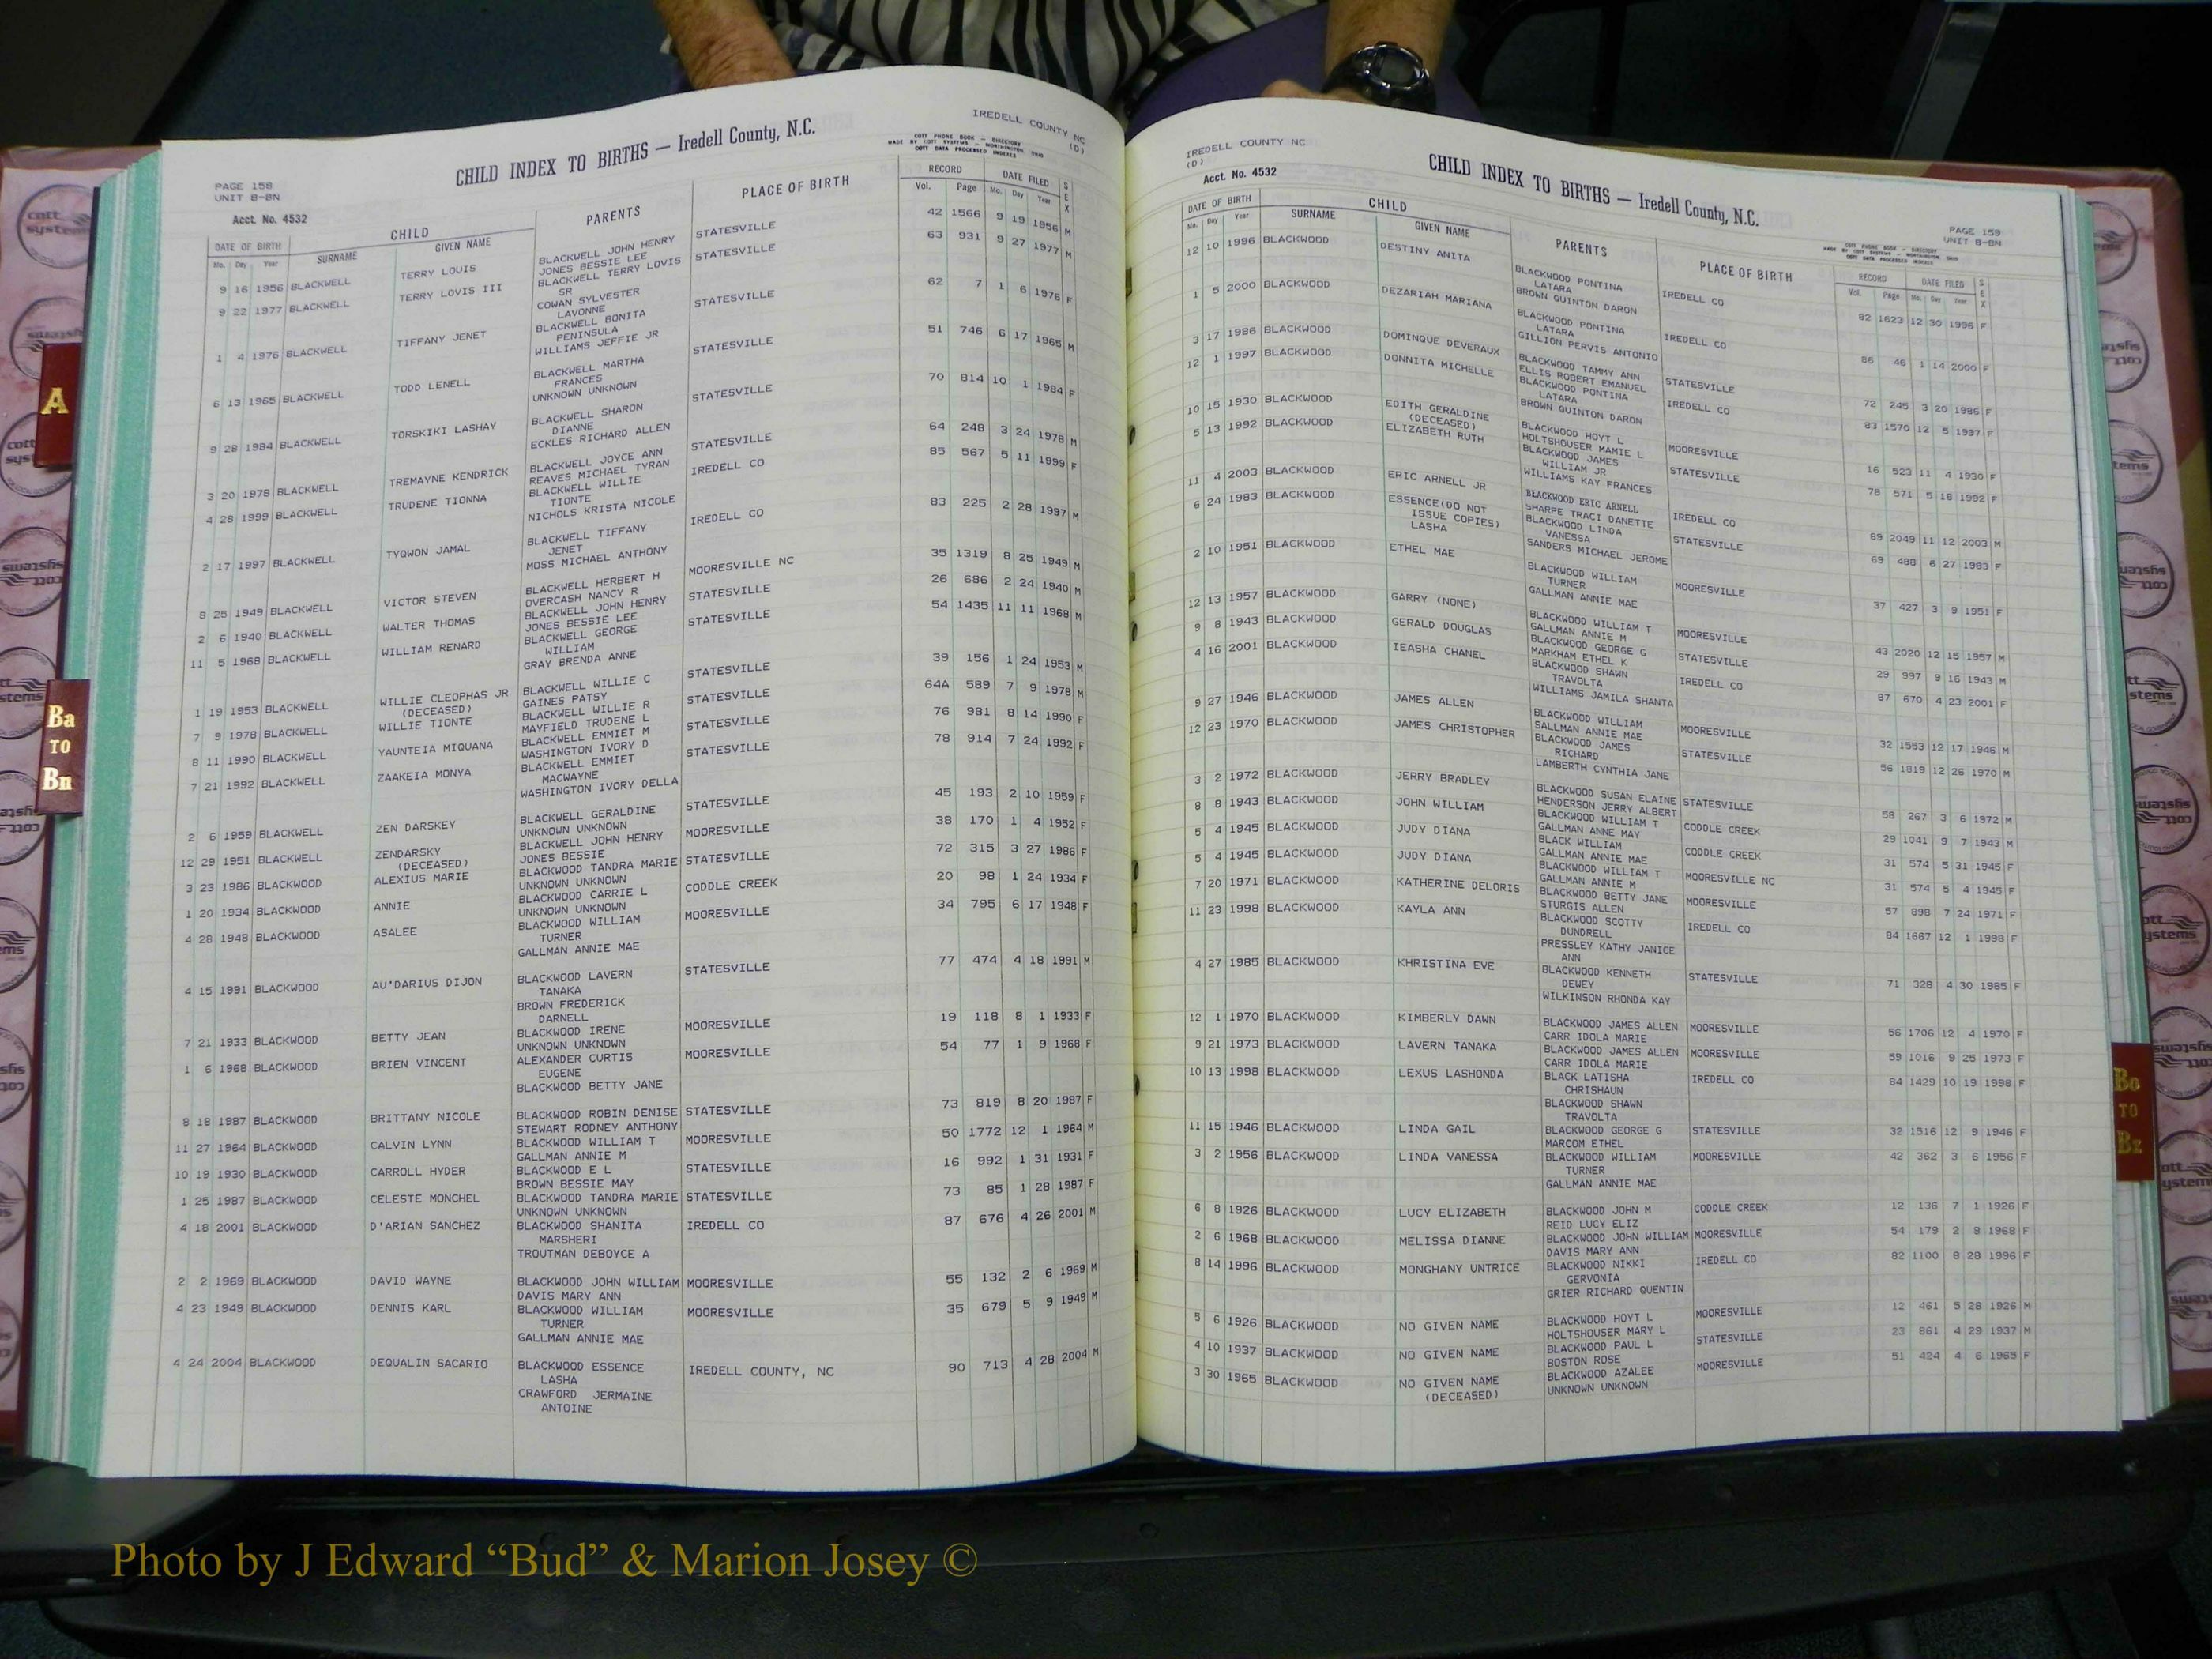 IREDELL COUNTY NC
(D)
CHILD INDEX TO BIRTHS — Iredell County, N.C.
COTT PHONE BOOK — DIRECTORY
MADE BY COTT SYSTEMS — WORTHINGTON, OHIO
COTT DATA PROCESSED INDEXES
PAGE 158
UNIT B-BN
Acct. No. 4532
DATE OF BIRTH CHILD PARENTS PLACE OF BIRTH RECORD DATE FILED SEX
Mo. Day Year SURNAME GIVEN NAME Vol. Page Mo. Day Year
9 16 1956 BLACKWELL TERRY LOUIS BLACKWELL JOHN HENRY STATESVILLE 42 1566 9 19 1956 M
JONES BESSIE LEE
9 22 1977 BLACKWELL TERRY LOVIS III BLACKWELL TERRY LOVIS STATESVILLE 63 931 9 27 1977 M
SR
COWAN SYLVESTER
LAVONNE
1 4 1976 BLACKWELL TIFFANY JENET BLACKWELL BONITA STATESVILLE 62 7 1 6 1976 F
PENINSULA
WILLIAMS JEFFIE JR
6 13 1965 BLACKWELL TODD LENELL BLACKWELL MARTHA STATESVILLE 51 746 6 17 1965 M
FRANCES
UNKNOWN UNKNOWN
9 28 1984 BLACKWELL TORSKIKI LASHAY BLACKWELL SHARON STATESVILLE 70 814 10 1 1984 F
DIANNE
ECKLES RICHARD ALLEN
3 20 1978 BLACKWELL TREMAYNE KENDRICK BLACKWELL JOYCE ANN STATESVILLE 64 248 3 24 1978 M
REAVES MICHAEL TYRAN
4 28 1999 BLACKWELL TRUDENE TIONNA BLACKWELL WILLIE IREDELL CO 85 567 5 11 1999 F
TIONTE
NICHOLS KRISTA NICOLE
2 17 1997 BLACKWELL TYQWON JAMAL BLACKWELL TIFFANY IREDELL CO 83 225 2 28 1997 M
JENET
MOSS MICHAEL ANTHONY
8 25 1949 BLACKWELL VICTOR STEVEN BLACKWELL HERBERT H MOORESVILLE NC 35 1319 8 25 1949 M
OVERCASH NANCY R
2 6 1940 BLACKWELL WALTER THOMAS BLACKWELL JOHN HENRY STATESVILLE 26 686 2 24 1940 M
JONES BESSIE LEE
11 5 1968 BLACKWELL WILLIAM RENARD BLACKWELL GEORGE STATESVILLE 54 1435 11 11 1968 M
WILLIAM
GRAY BRENDA ANNE
1 19 1953 BLACKWELL WILLIE CLEOPHAS JR BLACKWELL WILLIE C STATESVILLE 39 156 1 24 1953 M
(DECEASED) GAINES PATSY
7 9 1978 BLACKWELL WILLIE TIONTE BLACKWELL WILLIE R STATESVILLE 64A 589 7 9 1978 M
MAYFIELD TRUDENE L
8 11 1990 BLACKWELL YAUNTEIA MIQUANA BLACKWELL EMMIET M STATESVILLE 76 981 8 14 1990 F
WASHINGTON IVORY D
7 21 1992 BLACKWELL ZAAKEIA MONYA BLACKWELL EMMIET STATESVILLE 78 914 7 24 1992 F
MACWAYNE
WASHINGTON IVORY DELLA
2 6 1959 BLACKWELL ZEN DARSKEY BLACKWELL GERALDINE STATESVILLE 45 193 2 10 1959 F
UNKNOWN UNKNOWN
12 29 1951 BLACKWELL ZENDARSKY BLACKWELL JOHN HENRY MOORESVILLE 38 170 1 4 1952 F
(DECEASED) JONES BESSIE
3 23 1986 BLACKWOOD ALEXIUS MARIE BLACKWOOD TANDRA MARIE STATESVILLE 72 315 3 27 1986 F
UNKNOWN UNKNOWN
1 20 1934 BLACKWOOD ANNIE BLACKWOOD CARRIE L CODDLE CREEK 20 98 1 24 1934 F
UNKNOWN UNKNOWN
4 28 1948 BLACKWOOD ASALEE BLACKWOOD WILLIAM MOORESVILLE 34 795 6 17 1948 F
TURNER
GALLMAN ANNIE MAE
4 15 1991 BLACKWOOD AU'DARIUS DIJON BLACKWOOD LAVERN STATESVILLE 77 474 4 18 1991 M
TANAKA
BROWN FREDERICK
DARNELL
7 21 1933 BLACKWOOD BETTY JEAN BLACKWOOD IRENE MOORESVILLE 19 118 8 1 1933 F
UNKNOWN UNKNOWN
1 6 1968 BLACKWOOD BRIEN VINCENT ALEXANDER CURTIS MOORESVILLE 54 77 1 9 1968 F
EUGENE
BLACKWOOD BETTY JANE
8 18 1987 BLACKWOOD BRITTANY NICOLE BLACKWOOD ROBIN DENISE STATESVILLE 73 819 8 20 1987 F
STEWART RODNEY ANTHONY
11 27 1964 BLACKWOOD CALVIN LYNN BLACKWOOD WILLIAM T MOORESVILLE 50 1772 12 1 1964 M
GALLMAN ANNIE M
10 19 1930 BLACKWOOD CARROLL HYDER BLACKWOOD E L STATESVILLE 16 992 1 31 1931 F
BROWN BESSIE MAY
1 25 1987 BLACKWOOD CELESTE MONCHEL BLACKWOOD TANDRA MARIE STATESVILLE 73 85 1 28 1987 F
UNKNOWN UNKNOWN
4 18 2001 BLACKWOOD D'ARIAN SANCHEZ BLACKWOOD SHANITA IREDELL CO 87 676 4 26 2001 M
MARSHERI
TROUTMAN DEBOYCE A
2 2 1969 BLACKWOOD DAVID WAYNE BLACKWOOD JOHN WILLIAM MOORESVILLE 55 132 2 6 1969 M
DAVIS MARY ANN
4 23 1949 BLACKWOOD DENNIS KARL BLACKWOOD WILLIAM MOORESVILLE 35 679 5 9 1949 M
TURNER
GALLMAN ANNIE MAE
4 24 2004 BLACKWOOD DEQUALIN SACARIO BLACKWOOD ESSENCE IREDELL COUNTY, NC 90 713 4 28 2004 M
LASHA
CRAWFORD JERMAINE
ANTOINE
IREDELL COUNTY NC
(D)
Acct. No. 4532
CHILD INDEX TO BIRTHS — Iredell County, N.C.
PAGE 159
UNIT B-BN
COTT PHONE BOOK — DIRECTORY
MADE BY COTT SYSTEMS — WORTHINGTON, OHIO
COTT DATA PROCESSED INDEXES
DATE OF BIRTH CHILD PARENTS PLACE OF BIRTH RECORD DATE FILED SEX
Mo. Day Year SURNAME GIVEN NAME Vol. Page Mo. Day Year
12 10 1996 BLACKWOOD DESTINY ANITA BLACKWOOD PONTINA IREDELL CO 82 1623 12 30 1996 F
LATARA
BROWN QUINTON DARON
1 5 2000 BLACKWOOD DEZARIAH MARIANA BLACKWOOD PONTINA IREDELL CO 86 46 1 14 2000 F
LATARA
GILLION PERVIS ANTONIO
3 17 1986 BLACKWOOD DOMINQUE DEVERAUX BLACKWOOD TAMMY ANN STATESVILLE 72 245 3 20 1986 F
ELLIS ROBERT EMANUEL
12 1 1997 BLACKWOOD DONNITA MICHELLE BLACKWOOD PONTINA IREDELL CO 83 1570 12 5 1997 F
LATARA
BROWN QUINTON DARON
10 15 1930 BLACKWOOD EDITH GERALDINE BLACKWOOD HOYT L MOORESVILLE 16 523 11 4 1930 F
(DECEASED) HOLTSHOUSER MAMIE L
5 13 1992 BLACKWOOD ELIZABETH RUTH BLACKWOOD JAMES STATESVILLE 78 571 5 18 1992 F
WILLIAM JR
WILLIAMS KAY FRANCES
11 4 2003 BLACKWOOD ERIC ARNELL JR BLACKWOOD ERIC ARNELL IREDELL CO 89 2049 11 12 2003 M
SHARPE TRACI DANETTE
6 24 1983 BLACKWOOD ESSENCE(DO NOT BLACKWOOD LINDA STATESVILLE 69 488 6 27 1983 F
ISSUE COPIES) VANESSA
LASHA SANDERS MICHAEL JEROME
2 10 1951 BLACKWOOD ETHEL MAE BLACKWOOD WILLIAM MOORESVILLE 37 427 3 9 1951 F
TURNER
GALLMAN ANNIE MAE
12 13 1957 BLACKWOOD GARRY (NONE) BLACKWOOD WILLIAM T MOORESVILLE 43 2020 12 15 1957 M
GALLMAN ANNIE M
9 8 1943 BLACKWOOD GERALD DOUGLAS BLACKWOOD GEORGE G STATESVILLE 29 997 9 16 1943 M
MARKHAM ETHEL K
4 16 2001 BLACKWOOD IEASHA CHANEL BLACKWOOD SHAWN IREDELL CO 87 670 4 23 2001 F
TRAVOLTA
WILLIAMS JAMILA SHANTA
9 27 1946 BLACKWOOD JAMES ALLEN BLACKWOOD WILLIAM MOORESVILLE 32 1553 12 17 1946 M
SALLMAN ANNIE MAE
12 23 1970 BLACKWOOD JAMES CHRISTOPHER BLACKWOOD JAMES STATESVILLE 56 1819 12 26 1970 M
RICHARD
LAMBERTH CYNTHIA JANE
3 2 1972 BLACKWOOD JERRY BRADLEY BLACKWOOD SUSAN ELAINE STATESVILLE 58 267 3 6 1972 M
HENDERSON JERRY ALBERT
8 8 1943 BLACKWOOD JOHN WILLIAM BLACKWOOD WILLIAM T CODDLE CREEK 29 1041 9 7 1943 M
GALLMAN ANNE MAY
5 4 1945 BLACKWOOD JUDY DIANA BLACK WILLIAM CODDLE CREEK 31 574 5 31 1945 F
GALLMAN ANNIE MAE
5 4 1945 BLACKWOOD JUDY DIANA BLACKWOOD WILLIAM T MOORESVILLE NC 31 574 5 4 1945 F
GALLMAN ANNIE M
7 20 1971 BLACKWOOD KATHERINE DELORIS BLACKWOOD BETTY JANE MOORESVILLE 57 898 7 24 1971 F
STURGIS ALLEN
11 23 1998 BLACKWOOD KAYLA ANN BLACKWOOD SCOTTY IREDELL CO 84 1667 12 1 1998 F
DUNDRELL
PRESSLEY KATHY JANICE
ANN
4 27 1985 BLACKWOOD KHRISTINA EVE BLACKWOOD KENNETH STATESVILLE 71 328 4 30 1985 F
DEWEY
WILKINSON RHONDA KAY
12 1 1970 BLACKWOOD KIMBERLY DAWN BLACKWOOD JAMES ALLEN MOORESVILLE 56 1706 12 4 1970 F
CARR IDOLA MARIE
9 21 1973 BLACKWOOD LAVERN TANAKA BLACKWOOD JAMES ALLEN MOORESVILLE 59 1016 9 25 1973 F
CARR IDOLA MARIE
10 13 1998 BLACKWOOD LEXUS LASHONDA BLACK LATISHA IREDELL CO 84 1429 10 19 1998 F
CHRISHAUN
BLACKWOOD SHAWN
TRAVOLTA
11 15 1946 BLACKWOOD LINDA GAIL BLACKWOOD GEORGE G STATESVILLE 32 1516 12 9 1946 F
MARCOM ETHEL
3 2 1956 BLACKWOOD LINDA VANESSA BLACKWOOD WILLIAM MOORESVILLE 42 362 3 6 1956 F
TURNER
GALLMAN ANNIE MAE
6 8 1926 BLACKWOOD LUCY ELIZABETH BLACKWOOD JOHN M CODDLE CREEK 12 136 7 1 1926 F
REID LUCY ELIZ
2 6 1968 BLACKWOOD MELISSA DIANNE BLACKWOOD JOHN WILLIAM MOORESVILLE 54 179 2 8 1968 F
DAVIS MARY ANN
8 14 1996 BLACKWOOD MONGHANY UNTRICE BLACKWOOD NIKKI IREDELL CO 82 1100 8 28 1996 F
GERVONIA
GRIER RICHARD QUENTIN
5 6 1926 BLACKWOOD NO GIVEN NAME BLACKWOOD HOYT L MOORESVILLE 12 461 5 28 1926 M
HOLTSHOUSER MARY L
4 10 1937 BLACKWOOD NO GIVEN NAME BLACKWOOD PAUL L STATESVILLE 23 861 4 29 1937 M
BOSTON ROSE
3 30 1965 BLACKWOOD NO GIVEN NAME BLACKWOOD AZALEE MOORESVILLE 51 424 4 6 1965 F
(DECEASED) UNKNOWN UNKNOWN
A
Ba
TO
Bn
Bo
TO
Bz
cott
systems
Photo by J Edward “Bud” & Marion Josey ©